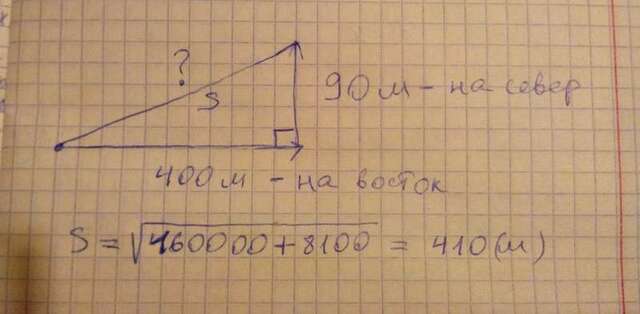 ?
S
90 м – на север
400 м – на восток
S = √160000 + 8100 = 410 (м)